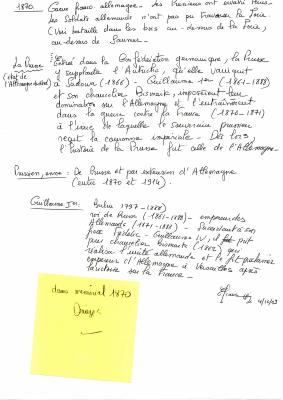 1870. Guerre franco-allemande. Les Prussiens ont envahi
Les soldats allemands n'ont pas pu traverser la Foria.
(Voir bataille dans les bois au-dessus de la Foria,
au-dessus de
La Prusse
(état de
l'Allemagne du Nord)
Entrée dans la Confédération germanique, la Prusse
y supplanta l'Autriche, qu'elle vainquit
à Sadowa (1866) - Guillaume 1er (1861-1888)
et son chancelier Bismarck, imposèrent leur
domination sur l'Allemagne et l'entraînèrent
dans la guerre contre la France (1870-1871)
à l'issue de laquelle le souverain prussien
reçut la couronne impériale. Dès lors,
l'histoire de la Prusse fut celle de l'Allemagne.
Prussien, enne : De Prusse et par extension d'Allemagne
(entre 1870 et 1914).
Guillaume 1er. Berlin 1797-1888)
roi de Prusse (1861-1888) - empereur des
Allemands (1871-1888) - Succédant à son
frère Frédéric-Guillaume IV, il prit
pour chancelier Bismarck (1862) qui
réalisa l'unité allemande et le fit proclamer
empereur d'Allemagne à Versailles après
la victoire sur la France -
dans mémorial 1870